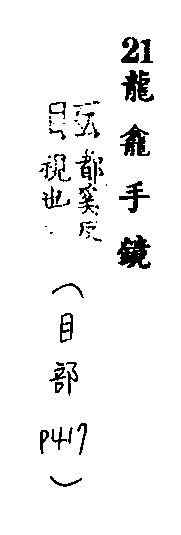 21龍龕手鏡
都奚反
視也
(目部
P417)